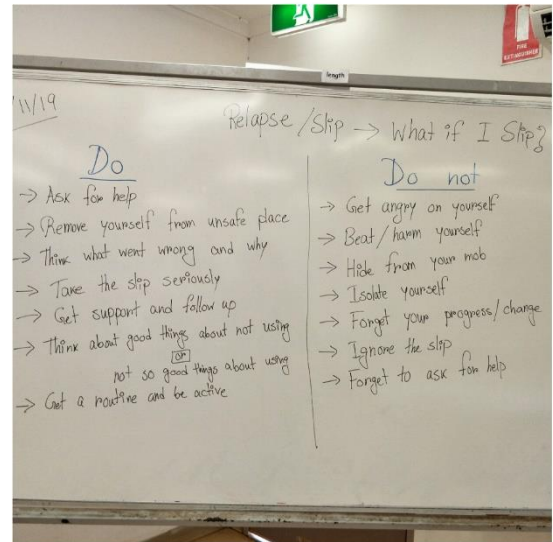 length
FIRE
EXTINGUISHER
/11/19
Relapse/Slip → What if I Slip?
Do
→ Ask for help
→ Remove yourself from unsafe place
→ Think what went wrong and why
→ Take the slip seriously
→ Get support and follow up
→ Think about good things about not using
or
not so good things about using
→ Get a routine and be active
Do not
→ Get angry on yourself
→ Beat/harm yourself
→ Hide from your mob
→ Isolate yourself
→ Forget your progress/change
→ Ignore the slip
→ Forget to ask for help